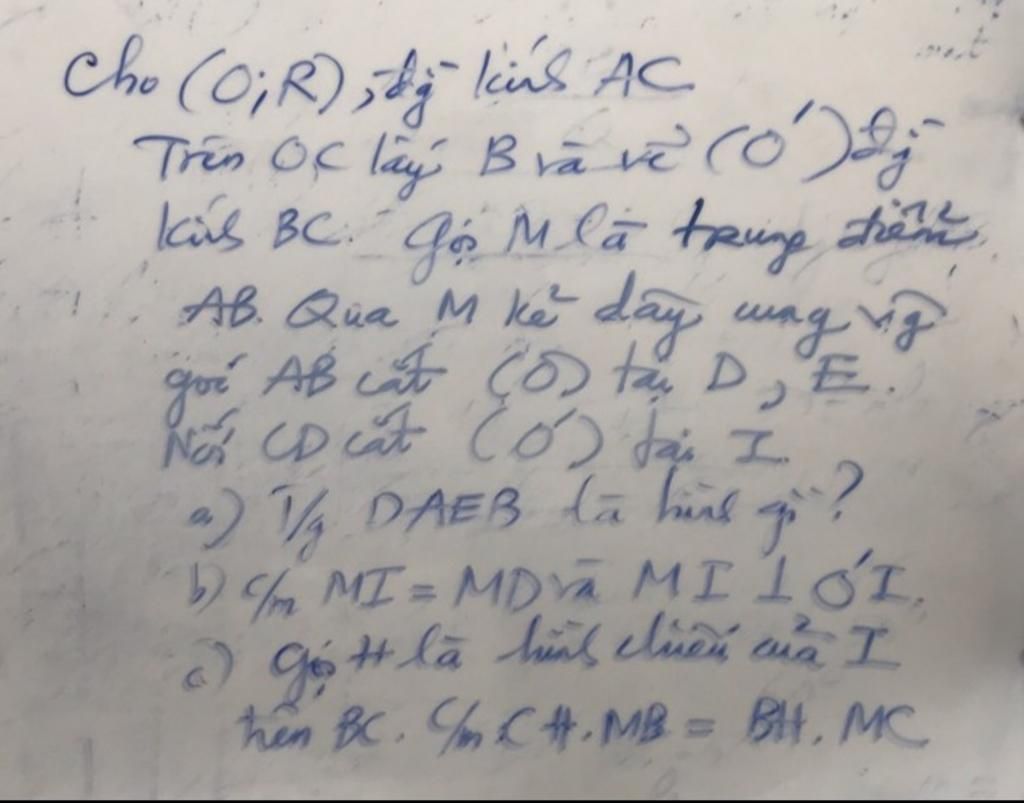 Cho (O;R), đg kính AC
Trên OC lấy B và vẽ (O') đg
kính BC. Gọi M là trung điểm
AB. Qua M kẻ dây cung vg
góc AB cắt (O) tại D, E.
Nối CD cắt (O') tại I.
a) T/g DAEB là hình gì?
b) c/m MI = MD và MI ⊥ O'I.
c) Gọi H là hình chiếu của I
trên BC. C/m CH.MB = BH.MC